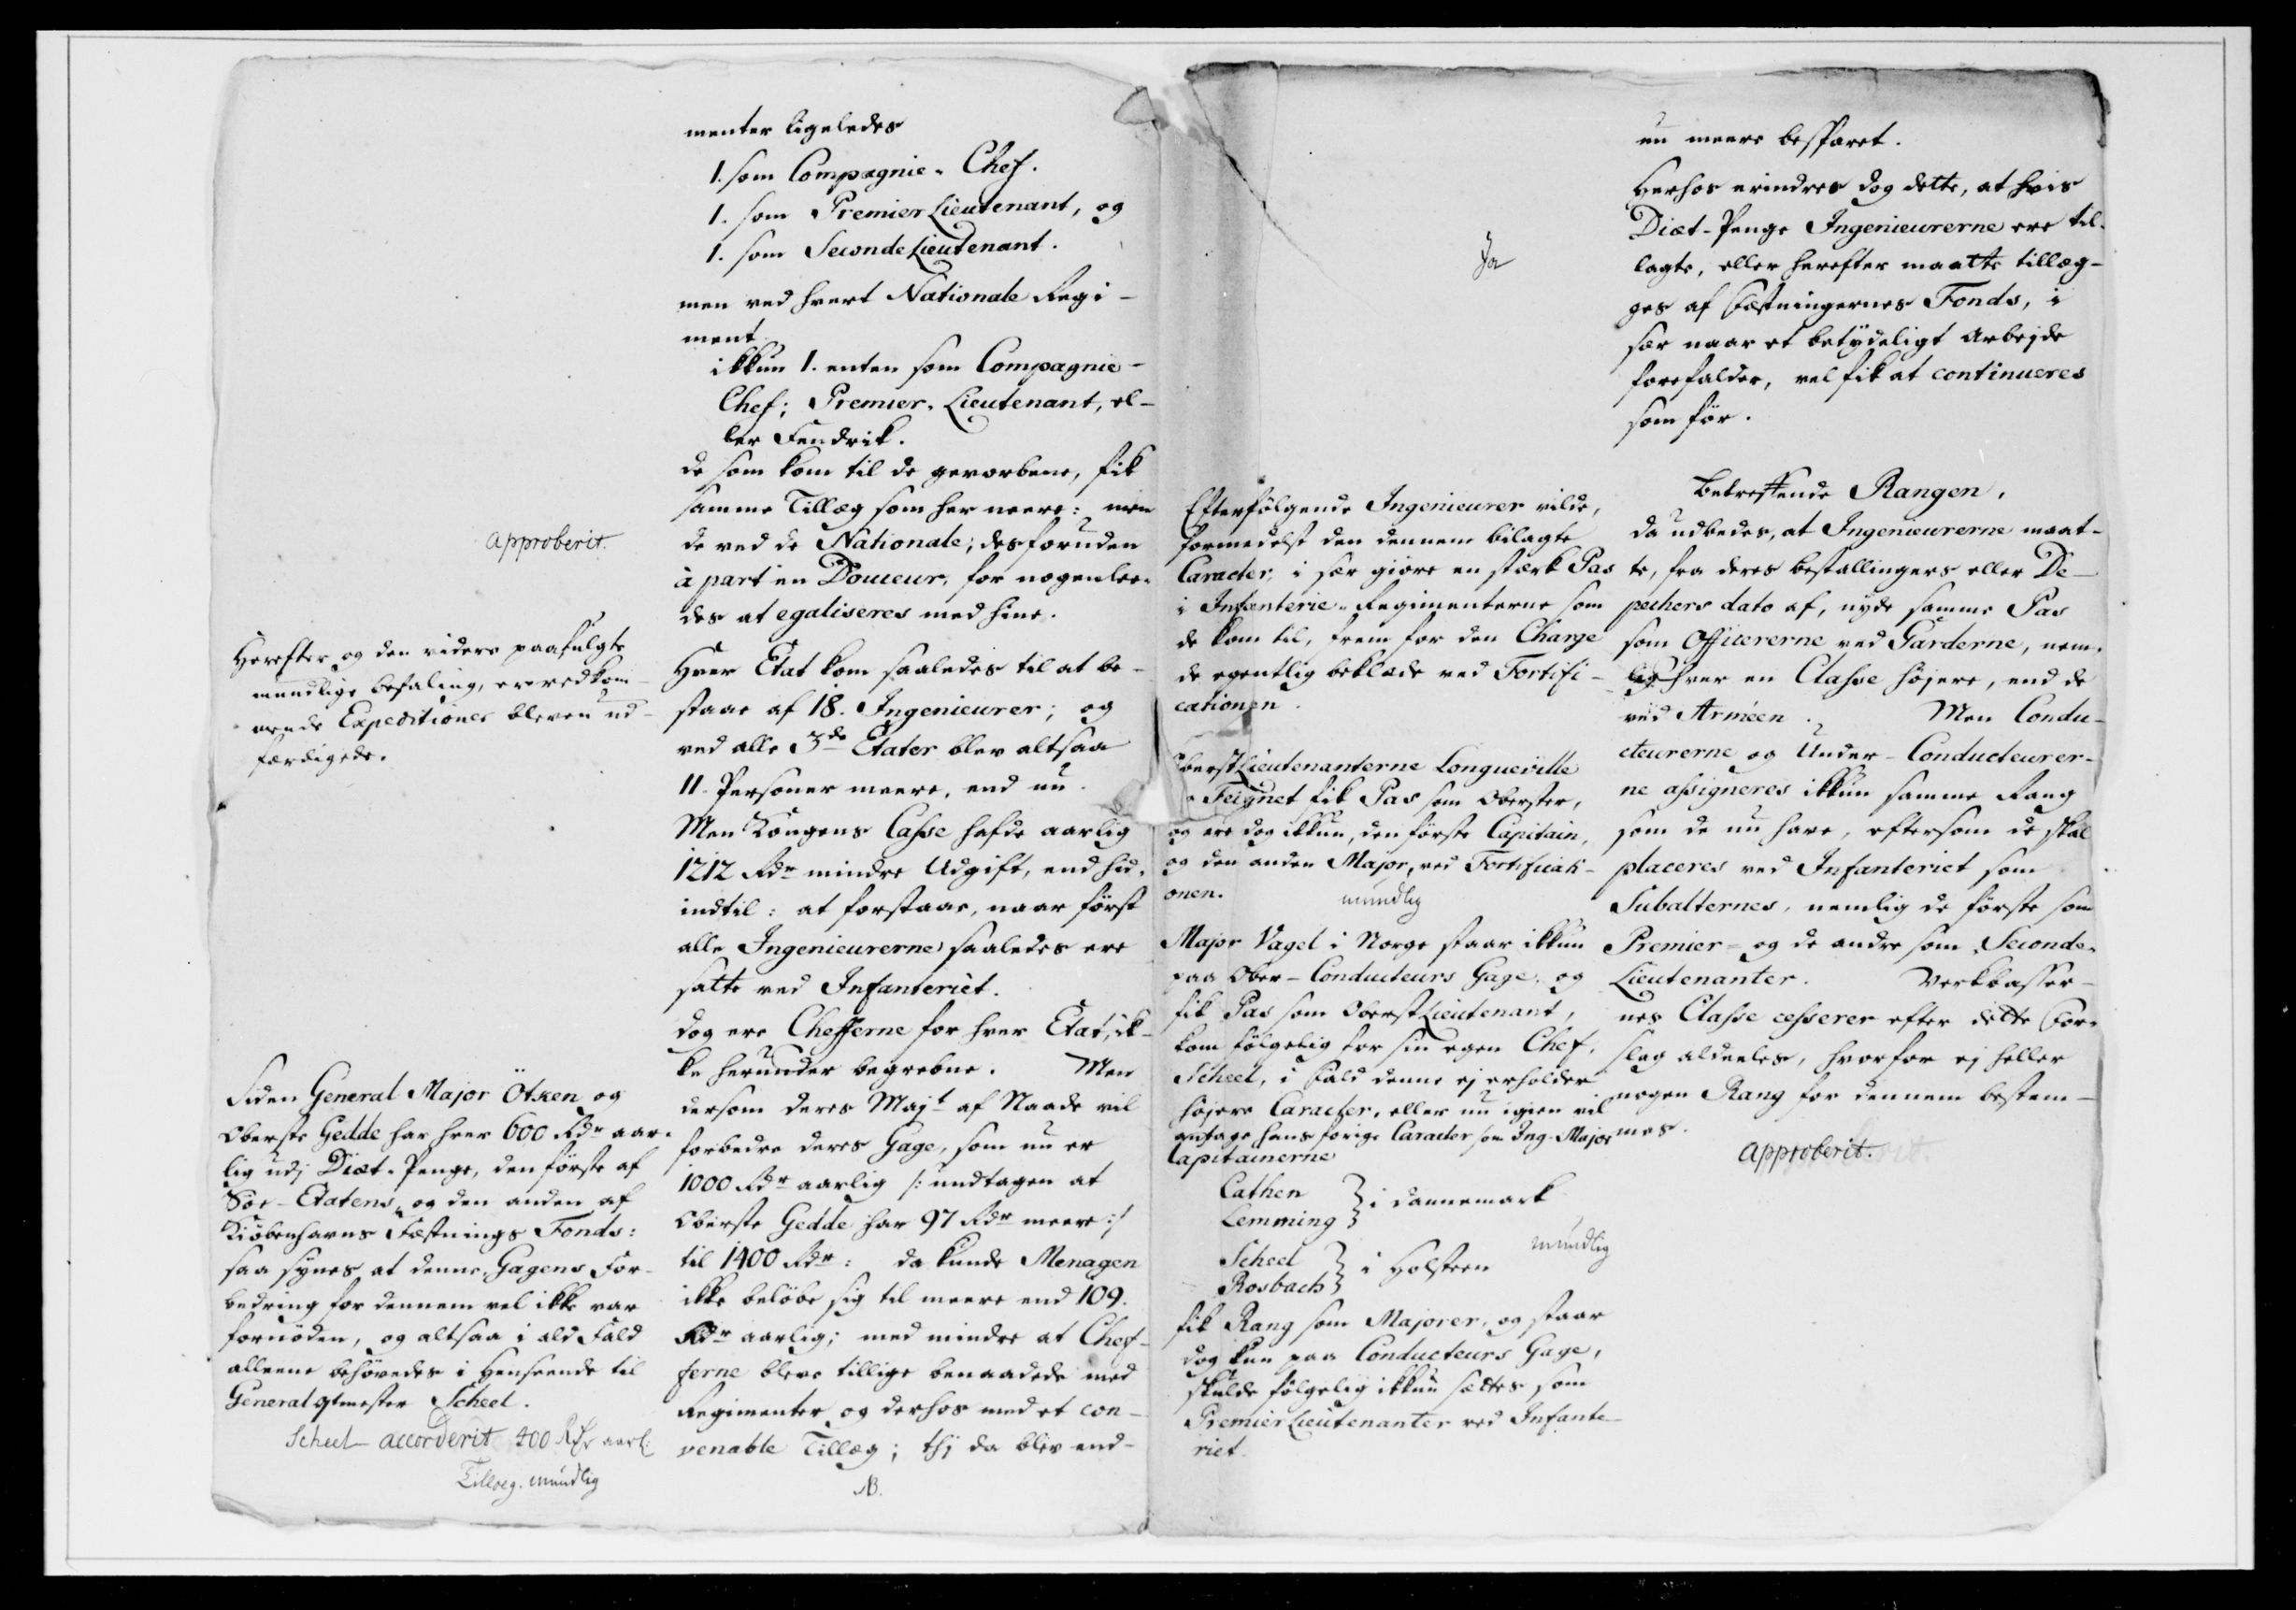 menter ligeledes
1. som Compagnie-Chef.
1. som Premier Lieutenant, og
1. som Seconde Lieutenant.
men ved hvert Nationale Regi-
ment
ikkun 1. enten som Compagnie-
Chef; Premier-Lieutenant, el-
ler Fendrik.
de som kom til de gevorbene, fik
samme Tillæg som her neere: men
de ved de Nationale; desforuden
à part en Douceur, for nogenlee-
des at egaliseres med hine.
Hver Etat kom saaledes til at be-
staae af 18. Ingenieurer; og
ved alle 3de Etater blev altsaa
11. Personer meere, end nu.
Men Kongens Casse hafde aarlig
1212 Rdr mindre Udgift, end hid-
indtil: at forstaae, naar först
alle Ingenieurerne saaledes ere
satte ved Infanteriet.
dog ere Chefferne for hver Etat, ik-
ke herunder begrebne. Men
dersom Deres Majt af Naade vil
forbedre deres Gage, som nu er
1000 Rdr aarlig /: undtagen at
Oberste Gedde har 97 Rdr meere :/
til 1400 Rdr: da kunde Menagen
ikke belöbe sig til meere end 109.
Rdr aarlig; med mindre at Chef-
ferne bleve tillige benaadede med
Regimenter og derhos med et con-
venable Tillæg; thj da blev end-
NB.
approberit.
Herefter og den videre paafulgte
mundlige befaling, ere vedkom-
mende Expeditioner bleven ud-
færdigede.
Siden General Major Ötken og
Oberste Gedde har hver 600 Rdr aar-
lig udj Diæt-Penge, den förste af
Söe-Etatens, og den anden af
Kiöbenhavns Fæstnings Fonds:
saa synes at denne Gagens For-
bedring for dennem vel ikke var
fornöden, og altsaa i ald Fald
alleene behövedes i Henseende til
General qtmester Scheel.
Scheel accorderit 400 Rdr aarl:
Tillæg. mundlig
Ja
Efterfölgende Ingenieurer vilde,
formedelst den dennem bilagte
Caracter, i sær giöre en stærk Pas
i Infanterie-Regimenterne som
de kom til, frem for den Charge
de egentlig beklæde ved Fortifi-
cationen.
Oberst Lieutenanterne Longueville
Feignet fik Pas som Oberster,
og ere dog ikkun, den förste Capitain,
og den anden Major, ved Fortificati-
onen. mundlig
Major Vagel i Norge staar ikkun
paa Ober-Conducteurs Gage, og
fik Pas som Oberst Lieutenant,
kom fölgelig for sin egen Chef,
Scheel, i Fald denne ej erholder
höjere Caracter, eller nu igien vil
antage hans forige Caracter som Ing. Major
Capitainerne
Cathen
Lemming } i Dannemark
Scheel
Rosbach } i Holsteen
mundlig
fik Rang som Majorer, og staar
dog kun paa Conducteurs Gage,
skulde fölgelig ikkun sættes som
Premier Lieutenanter ved Infante-
riet.
nu meere bespaaret.
Herhos erindres dog dette, at hvis
Diæt-Penge Ingenieurerne ere til-
lagte, eller herefter maatte tillæg-
ges af Fæstningernes Fonds, i
sær naar et betydeligt Arbejde
forefalder, vel fik at continueres
som för.
Betreffende Rangen,
da udbedes, at Ingenieurerne maat-
te, fra deres bestallingers eller De-
pechers dato af, nyde samme Pas
som Officererne ved Garderne, nem-
lig hver en Classe höjere, end de
ved Arméen. Men Condu-
cteurerne og Under-Conducteurer-
ne assigneres ikkun samme Rang
som de nu have, eftersom de skal
placeres ved Infanteriet som
Subalternes, nemlig de förste som
Premier- og de andre som Seconde-
Lieutenanter. Verkbasser-
nes Classe cesserer efter dette For-
slag aldeeles, hvorfor ej heller
nogen Rang for dennem bestem-
mes.
approberit.